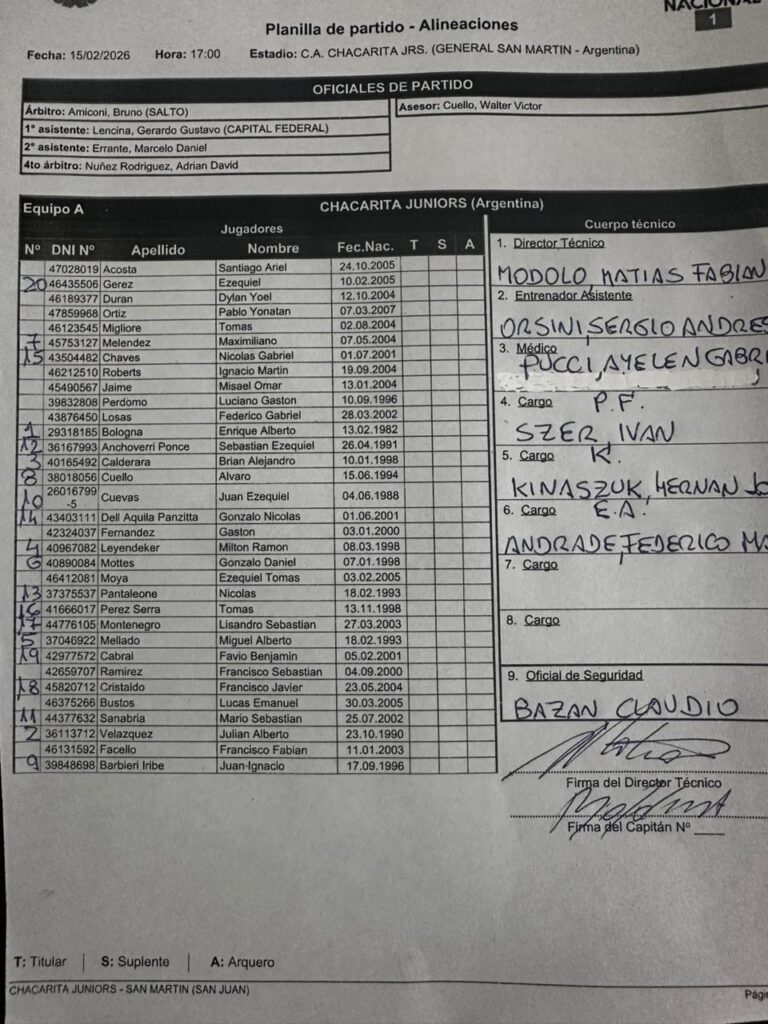 NACIONAL
1
Planilla de partido - Alineaciones
Fecha: 15/02/2026 Hora: 17:00 Estadio: C.A. CHACARITA JRS. (GENERAL SAN MARTIN - Argentina)
OFICIALES DE PARTIDO
Árbitro: Amiconi, Bruno (SALTO)
Asesor: Cuello, Walter Victor
1° asistente: Lencina, Gerardo Gustavo (CAPITAL FEDERAL)
2° asistente: Errante, Marcelo Daniel
4to árbitro: Nuñez Rodriguez, Adrian David
Equipo A CHACARITA JUNIORS (Argentina)
Jugadores
Nº DNI Nº Apellido Nombre Fec.Nac. T S A
47028019 Acosta Santiago Ariel 24.10.2005
20 46435506 Gerez Ezequiel 10.02.2005
46189377 Duran Dylan Yoel 12.10.2004
47859968 Ortiz Pablo Yonatan 07.03.2007
46123545 Migliore Tomas 02.08.2004
7 45753127 Melendez Maximiliano 07.05.2004
15 43504482 Chaves Nicolas Gabriel 01.07.2001
46212510 Roberts Ignacio Martin 19.09.2004
45490567 Jaime Misael Omar 13.01.2004
39832808 Perdomo Luciano Gaston 10.09.1996
43876450 Losas Federico Gabriel 28.03.2002
1 29318185 Bologna Enrique Alberto 13.02.1982
12 36167993 Anchoverri Ponce Sebastian Ezequiel 26.04.1991
3 40165492 Calderara Brian Alejandro 10.01.1998
8 38018056 Cuello Alvaro 15.06.1994
10 26016799-5 Cuevas Juan Ezequiel 04.06.1988
14 43403111 Dell Aquila Panzitta Gonzalo Nicolas 01.06.2001
42324037 Fernandez Gaston 03.01.2000
4 40967082 Leyendeker Milton Ramon 08.03.1998
6 40890084 Mottes Gonzalo Daniel 07.01.1998
46412081 Moya Ezequiel Tomas 03.02.2005
13 37375537 Pantaleone Nicolas 18.02.1993
16 41666017 Perez Serra Tomas 13.11.1998
17 44776105 Montenegro Lisandro Sebastian 27.03.2003
5 37046922 Mellado Miguel Alberto 18.02.1993
19 42977572 Cabral Favio Benjamin 05.02.2001
42659707 Ramirez Francisco Sebastian 04.09.2000
18 45820712 Cristaldo Francisco Javier 23.05.2004
46375266 Bustos Lucas Emanuel 30.03.2005
11 44377632 Sanabria Mario Sebastian 25.07.2002
2 36113712 Velazquez Julian Alberto 23.10.1990
46131592 Facello Francisco Fabian 11.01.2003
9 39848698 Barbieri Iribe Juan-Ignacio 17.09.1996
Cuerpo técnico
1. Director Técnico
MODOLO, MATIAS FABIAN
2. Entrenador Asistente
ORSINI, SERGIO ANDRES
3. Médico
PUCCI, AYELEN GABRI
4. Cargo P.F.
SZER, IVAN
5. Cargo K.
KINASZUK, HERNAN JO
6. Cargo E.A.
ANDRADE, FEDERICO MA
7. Cargo
8. Cargo
9. Oficial de Seguridad
BAZAN CLAUDIO
Firma del Director Técnico
Firma del Capitán Nº ____
T: Titular | S: Suplente | A: Arquero
CHACARITA JUNIORS - SAN MARTIN (SAN JUAN)
Págin